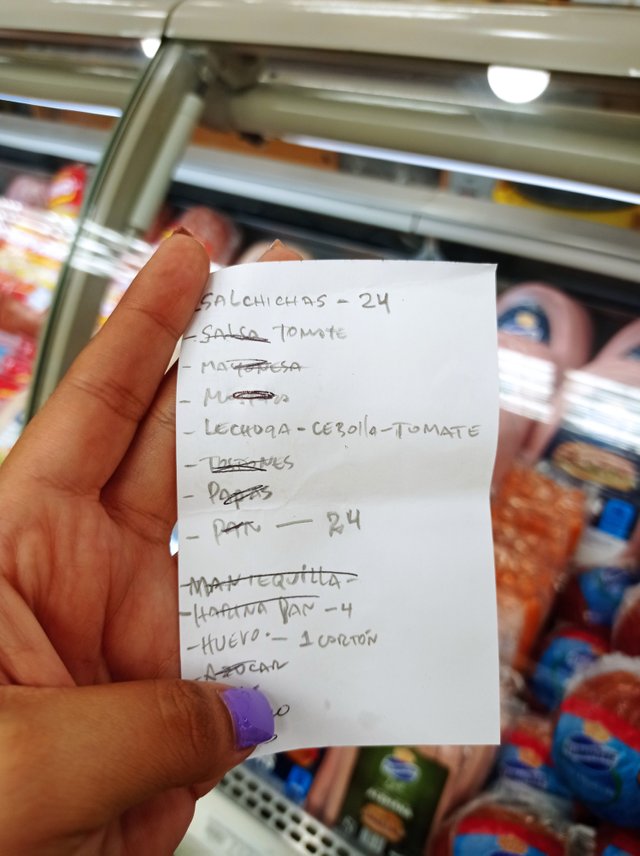 SALCHICHAS - 24
- SALSA TOMATE
- MAYONESA
- LECHUGA - CEBOllA - TOMATE
- PAPAS
- PAN — 24
- MANTEQUILLA -
- HARINA PAN - 4
- HUEVO. - 1 CARTÓN
- AZUCAR